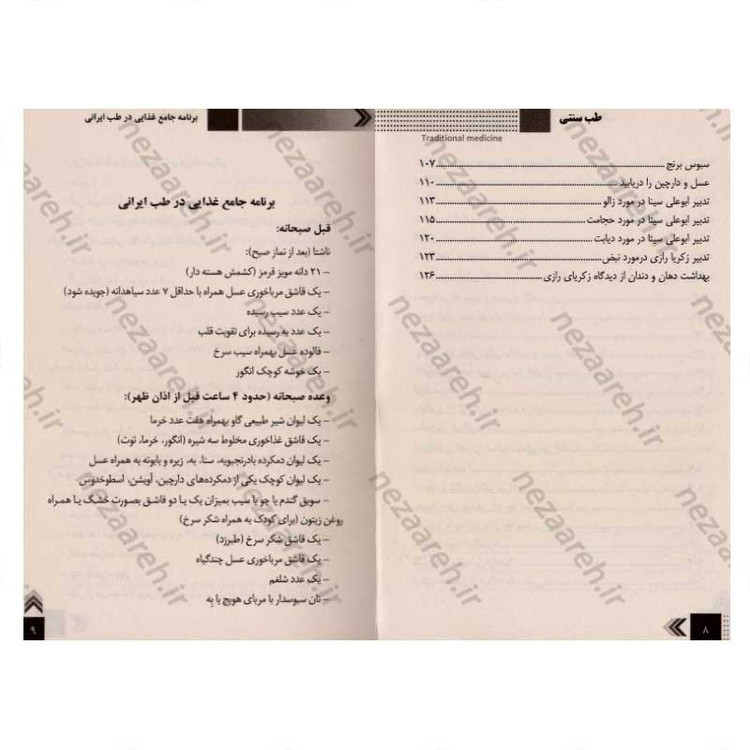 طب سنتی
Traditional medicine
سبوس برنج ۱۰۷
عسل و دارچین را دریابید ۱۱۰
تدبیر ابوعلی سینا در مورد زالو ۱۱۳
تدبیر ابوعلی سینا در مورد حجامت ۱۱۵
تدبیر ابوعلی سینا در مورد دیابت ۱۲۰
تدبیر زکریا رازی درمورد نبض ۱۲۳
بهداشت دهان و دندان از دیدگاه زکریای رازی ۱۲۶
۸
برنامه جامع غذایی در طب ایرانی
برنامه جامع غذایی در طب ایرانی
قبل صبحانه:
ناشتا (بعد از نماز صبح):
- ۲۱ دانه مویز قرمز (کشمش هسته دار)
- یک قاشق مرباخوری عسل همراه با حداقل ۷ عدد سیاهدانه (جویده شود)
- یک عدد سیب رسیده
- یک عدد به رسیده برای تقویت قلب
- فالوده عسل بهمراه سیب سرخ
- یک خوشه کوچک انگور
وعده صبحانه (حدود ۴ ساعت قبل از اذان ظهر):
- یک لیوان شیر طبیعی گاو بهمراه هفت عدد خرما
- یک قاشق غذاخوری مخلوط سه شیره (انگور، خرما، توت)
- یک لیوان دمکرده بادرنجبویه، سنا، به، زیره و بابونه به همراه عسل
- یک لیوان کوچک یکی از دمکرده‌های دارچین، آویشن، اسطوخدوس
- سویق گندم یا جو با سیب بمیزان یک یا دو قاشق بصورت خشک یا همراه
روغن زیتون (برای کودک به همراه شکر سرخ)
- یک قاشق شکر سرخ (طبرزد)
- یک قاشق مرباخوری عسل چندگیاه
- یک عدد شلغم
- نان سبوسدار با مربای هویج یا بِه
۹
nezaareh.ir
nezaareh.ir
nezaareh.ir
nezaareh.ir
nezaareh.ir
nezaareh.ir
nezaareh.ir
nezaareh.ir